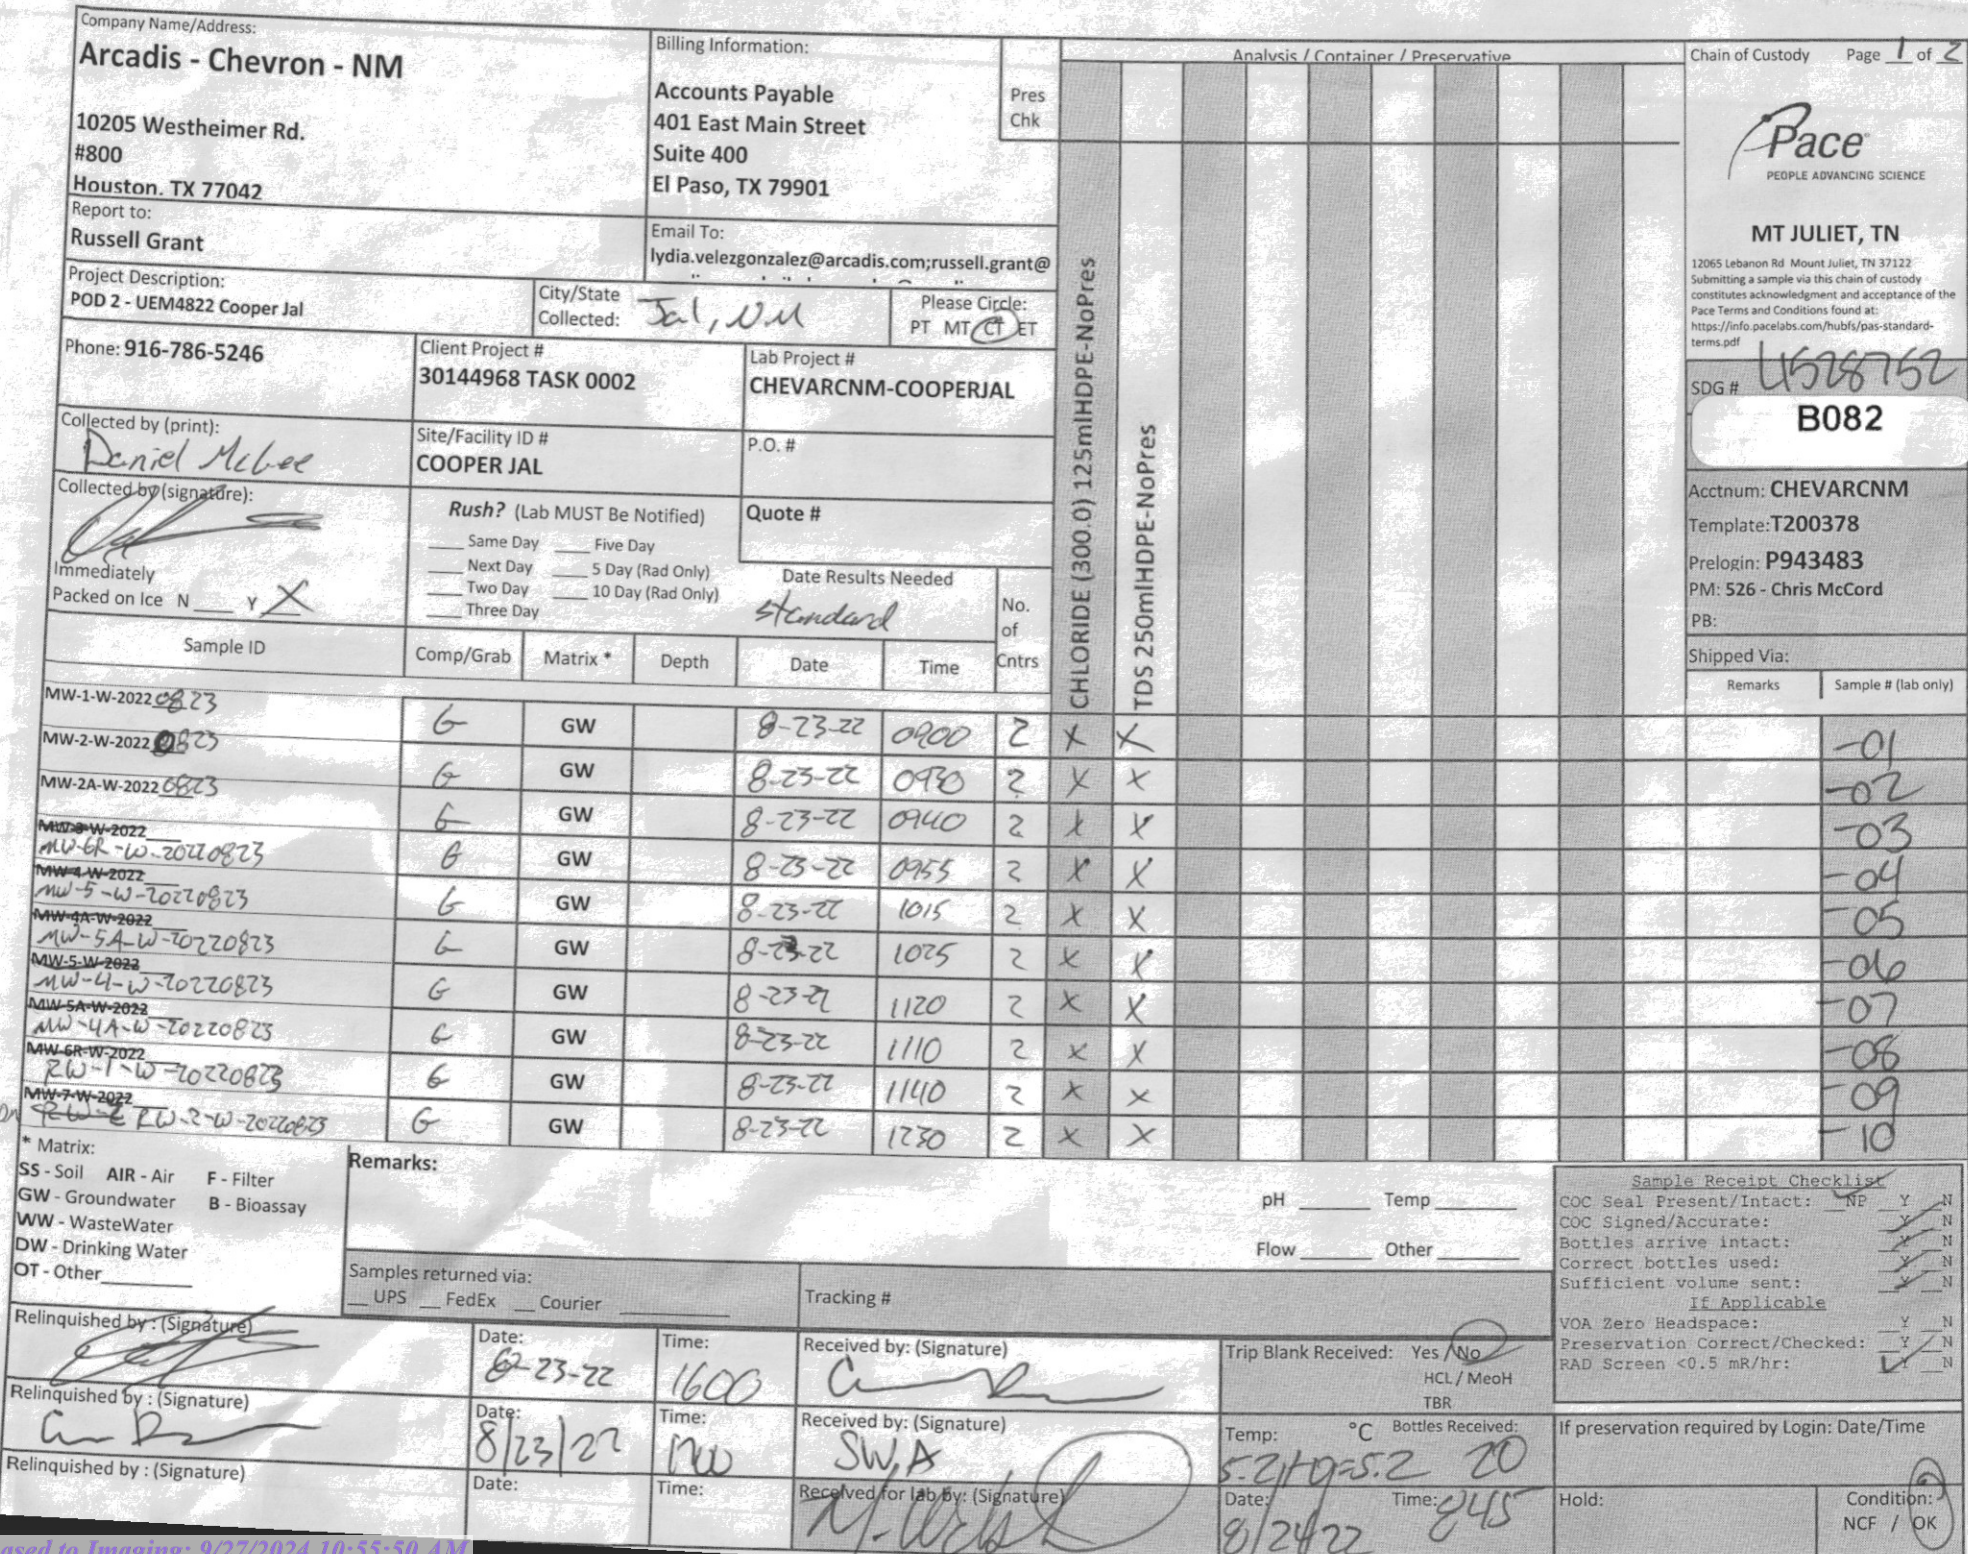 Company Name/Address:
Arcadis - Chevron - NM
10205 Westheimer Rd.
#800
Houston, TX 77042
Billing Information:
Accounts Payable
401 East Main Street
Suite 400
El Paso, TX 79901
Pres
Chk
Analysis / Container / Preservative
Chain of Custody Page 1 of 2
Pace
PEOPLE ADVANCING SCIENCE
MT JULIET, TN
12065 Lebanon Rd Mount Juliet, TN 37122
Submitting a sample via this chain of custody
constitutes acknowledgment and acceptance of the
Pace Terms and Conditions found at:
https://info.pacelabs.com/hubfs/pas-standard-
terms.pdf
Report to:
Russell Grant
Email To:
lydia.velezgonzalez@arcadis.com;russell.grant@
Project Description:
POD 2 - UEM4822 Cooper Jal
City/State
Collected: Jal, NM
Please Circle:
PT MT CT ET
Phone: 916-786-5246
Client Project #
30144968 TASK 0002
Lab Project #
CHEVARCNM-COOPERJAL
SDG # L1528752
B082
Collected by (print):
Daniel McGee
Site/Facility ID #
COOPER JAL
P.O. #
Collected by (signature):
Rush? (Lab MUST Be Notified)
Same Day Five Day
Next Day 5 Day (Rad Only)
Two Day 10 Day (Rad Only)
Three Day
Quote #
Date Results Needed
standard
Immediately
Packed on Ice N Y X
No.
of
Cntrs
CHLORIDE (300.0) 125mlHDPE-NoPres
TDS 250mlHDPE-NoPres
Acctnum: CHEVARCNM
Template: T200378
Prelogin: P943483
PM: 526 - Chris McCord
PB:
Shipped Via:
Sample ID Comp/Grab Matrix * Depth Date Time Remarks Sample # (lab only)
MW-1-W-2022 0823 G GW 8-23-22 0900 2 X X -01
MW-2-W-2022 0823 G GW 8-23-22 0930 2 X X -02
MW-2A-W-2022 0823 G GW 8-23-22 0940 2 X X -03
MW-3-W-2022
MW-6R-W-20220823 G GW 8-23-22 0955 2 X X -04
MW-4-W-2022
MW-5-W-20220823 G GW 8-23-22 1015 2 X X -05
MW-4A-W-2022
MW-5A-W-20220823 G GW 8-23-22 1025 2 X X -06
MW-5-W-2022
MW-4-W-20220823 G GW 8-23-22 1120 2 X X -07
MW-5A-W-2022
MW-4A-W-20220823 G GW 8-23-22 1110 2 X X -08
MW-6R-W-2022
RW-1-W-20220823 G GW 8-23-22 1140 2 X X -09
MW-7-W-2022
DM RW-2 RW-2-W-20220823 G GW 8-23-22 1230 2 X X -10
* Matrix:
SS - Soil AIR - Air F - Filter
GW - Groundwater B - Bioassay
WW - WasteWater
DW - Drinking Water
OT - Other
Remarks:
pH Temp
Flow Other
Samples returned via:
UPS FedEx Courier
Tracking #
Sample Receipt Checklist
COC Seal Present/Intact: NP Y N
COC Signed/Accurate: Y N
Bottles arrive intact: Y N
Correct bottles used: Y N
Sufficient volume sent: Y N
If Applicable
VOA Zero Headspace: Y N
Preservation Correct/Checked: Y N
RAD Screen <0.5 mR/hr: Y N
Relinquished by : (Signature)
Date:
8-23-22
Time:
1600
Received by: (Signature)
Trip Blank Received: Yes / No
HCL / MeoH
TBR
Relinquished by : (Signature)
Date:
8/23/22
Time:
1700
Received by: (Signature)
SWA
Temp: °C Bottles Received:
5.2+0=5.2 20
If preservation required by Login: Date/Time
Relinquished by : (Signature)
Date:
Time:
Received for lab by: (Signature)
Date:
8/24/22
Time: 845
Hold:
Condition:
NCF / OK
ased to Imaging: 9/27/2024 10:55:50 AM